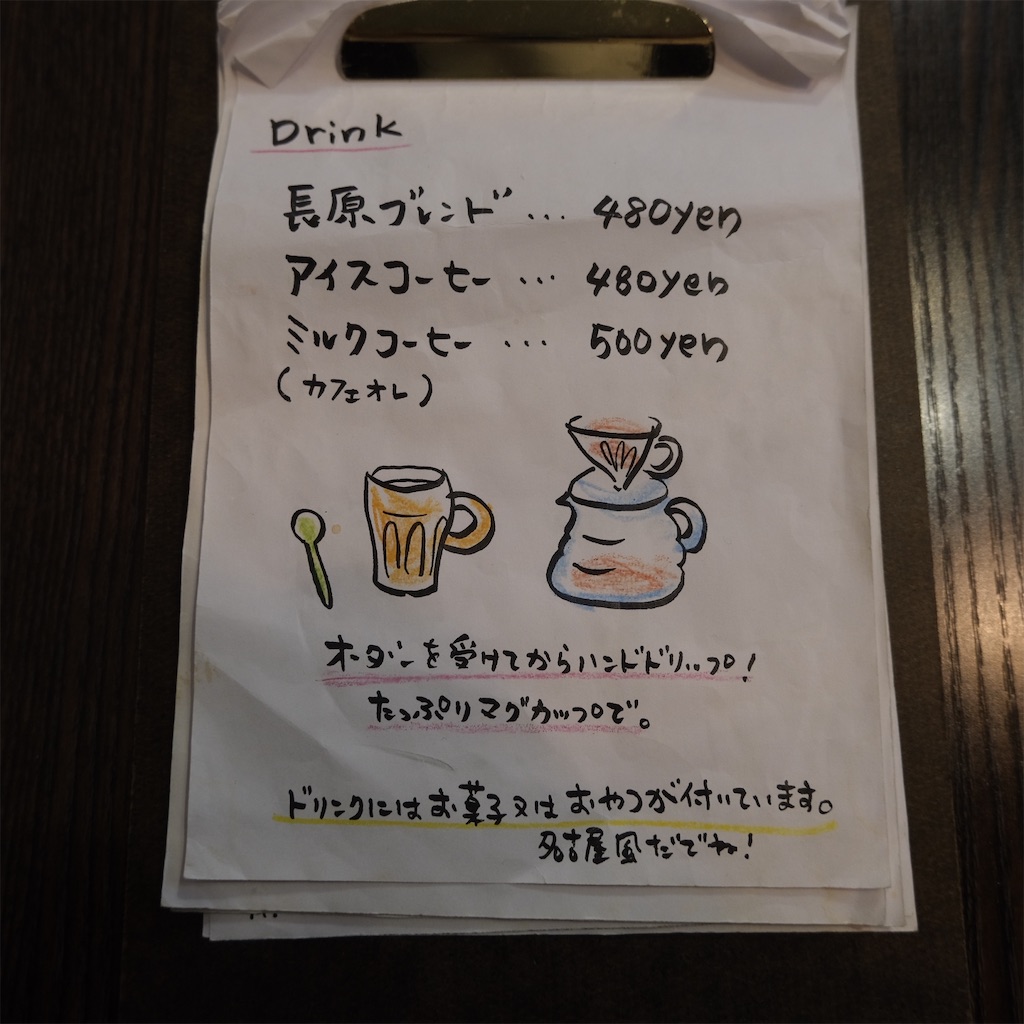 Drink
長原ブレンド... 480yen
アイスコーヒー ... 480yen
ミルクコーヒー ... 500yen
(カフェオレ)
オーダーを受けてからハンドドリップ!
たっぷりマグカップで。
ドリンクにはお菓子又はおやつが付いています。
名古屋風だでね!